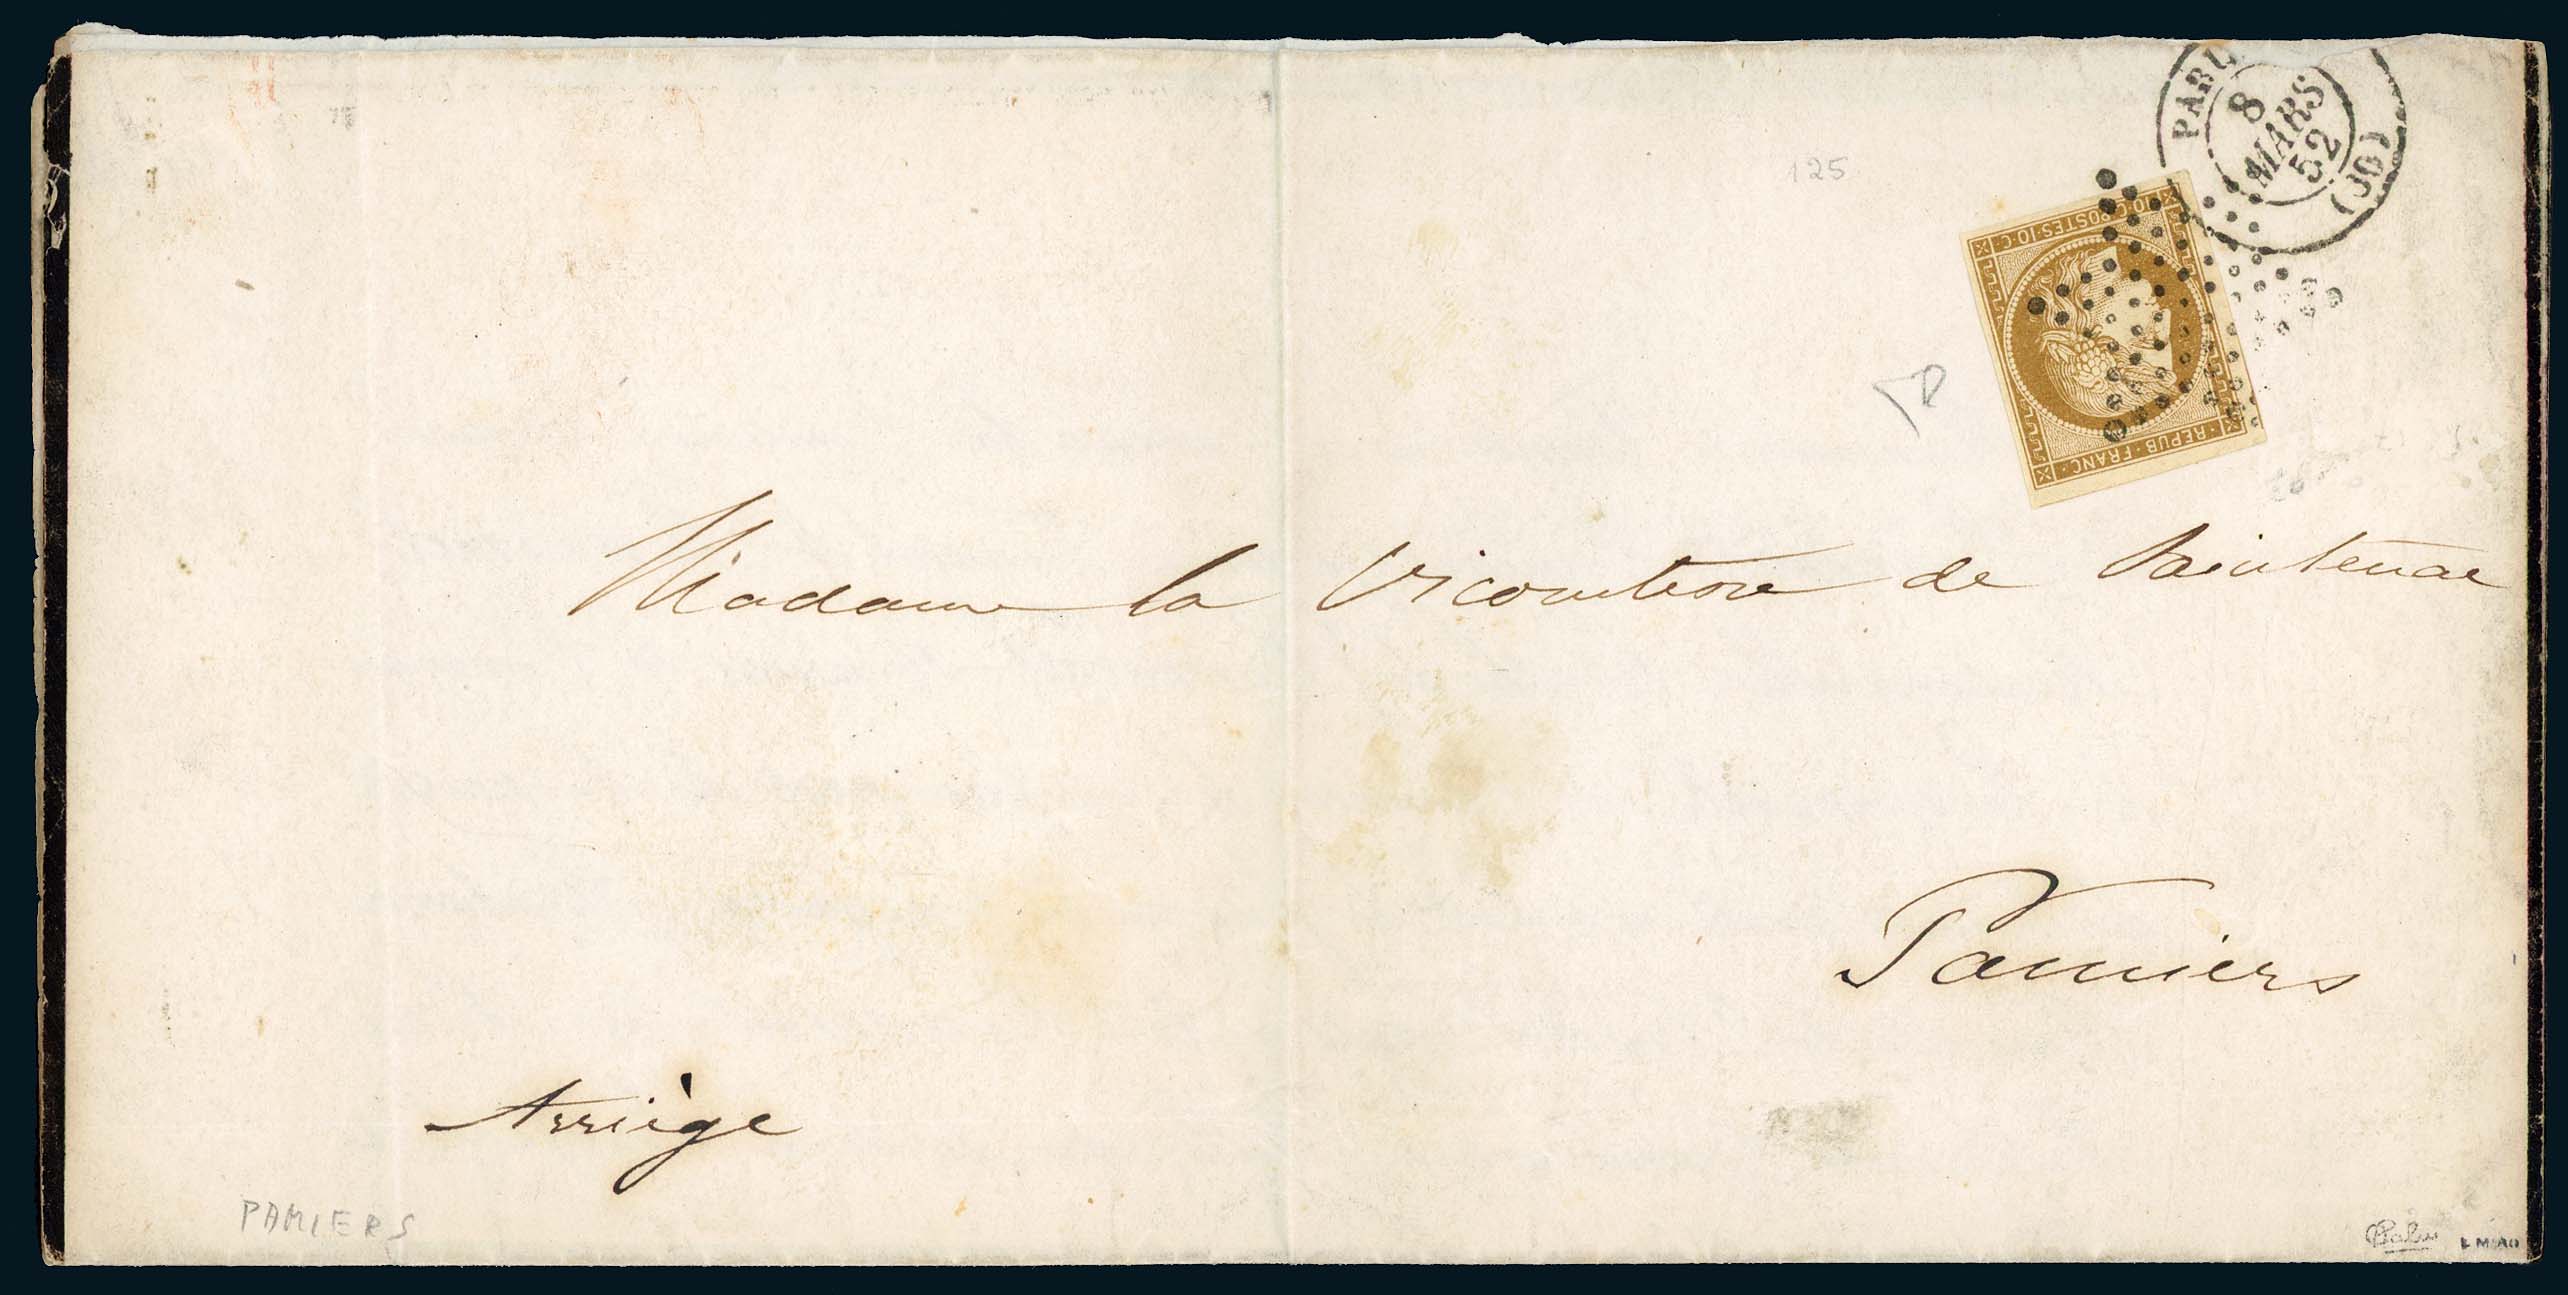 PARIS
8
MARS
52
(60)
125
10·C·POSTES·10·C·
REPUB·FRANC·
Madame la Vicomtesse de Saintenac
Pamiers
Arriège
PAMIERS
Calves